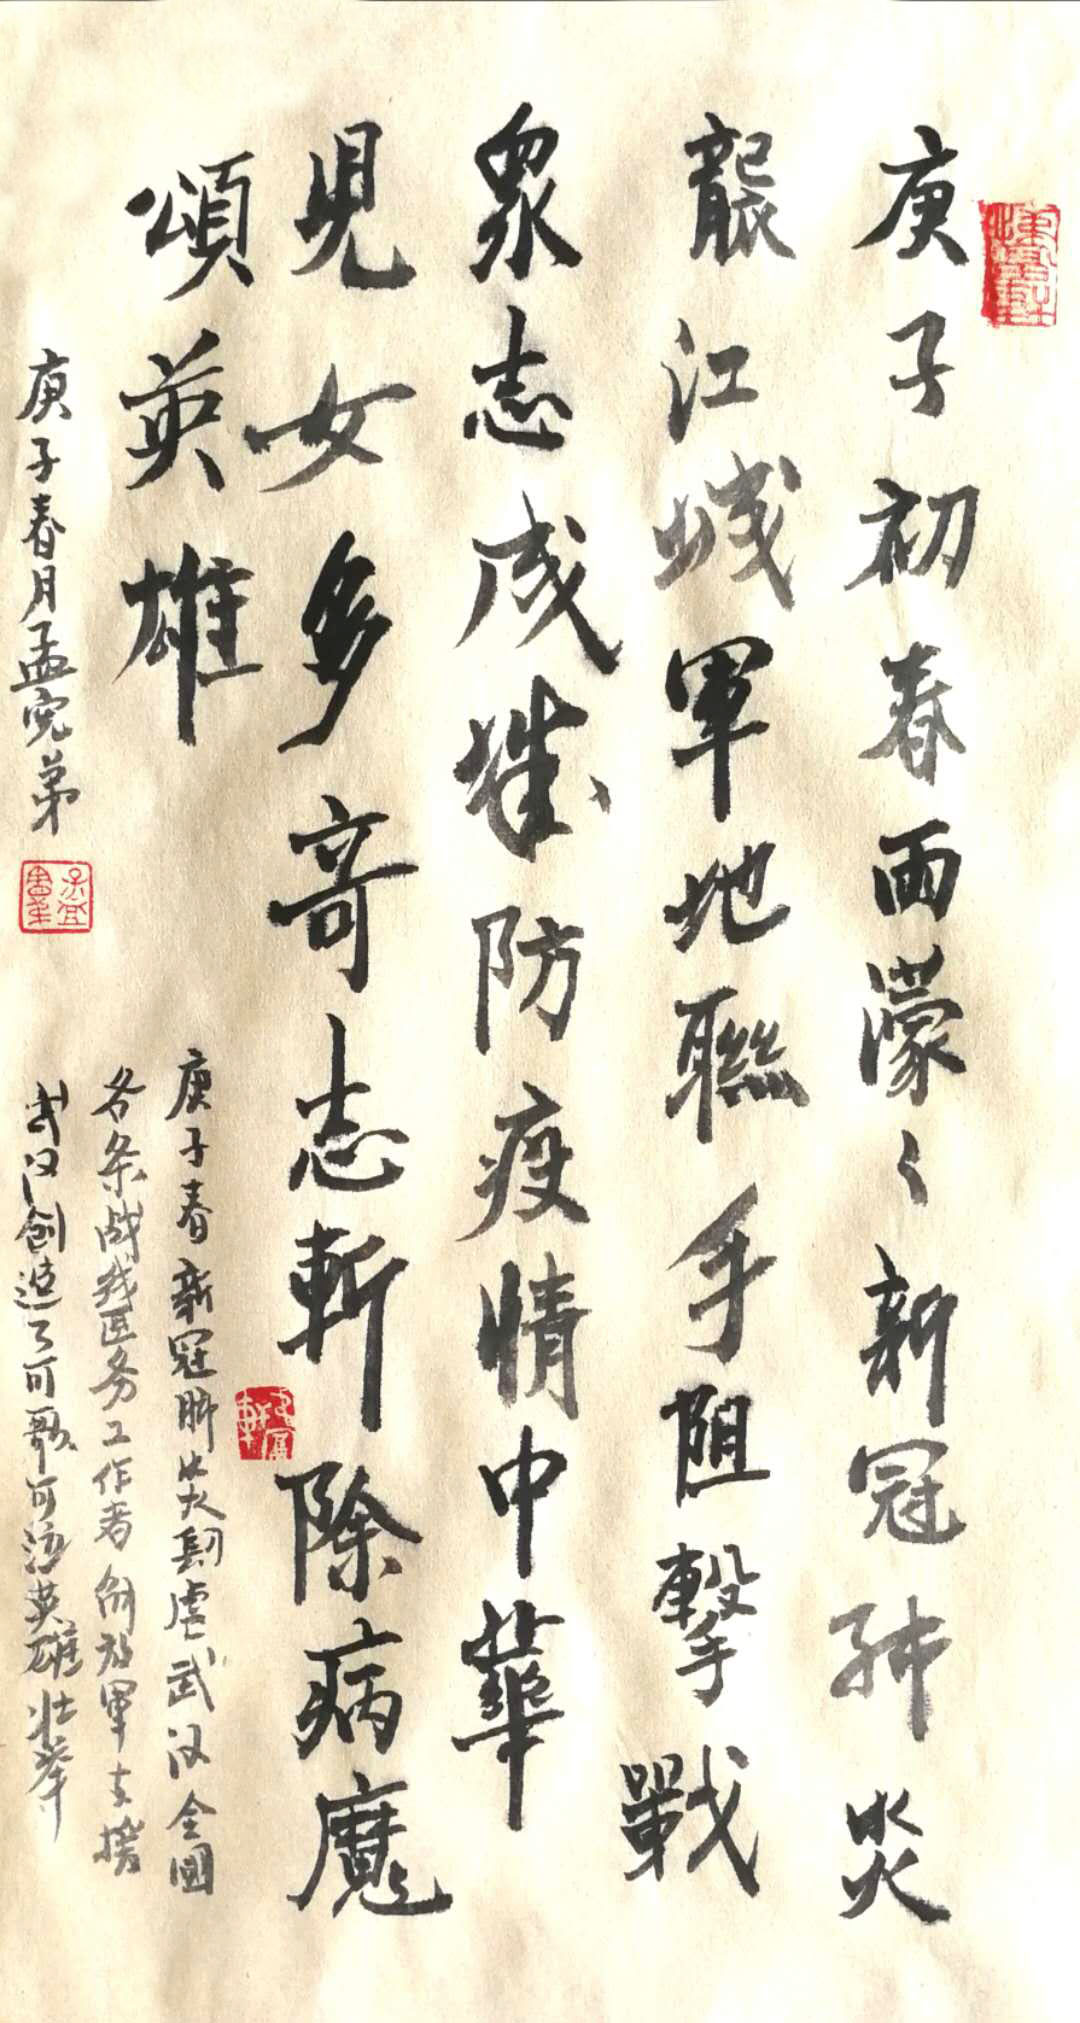 庚子初春雨濛々新冠肺炎
襲江城軍地聯手阻擊戰
眾志成城防疫情中華
兒女多奇志斬除病魔
頌英雄
庚子春新冠肺炎肆虐武汉全國
各条战线医务工作者解放軍支援
武汉创造了可歌可泣英雄壮举
庚子春月孟宪弟